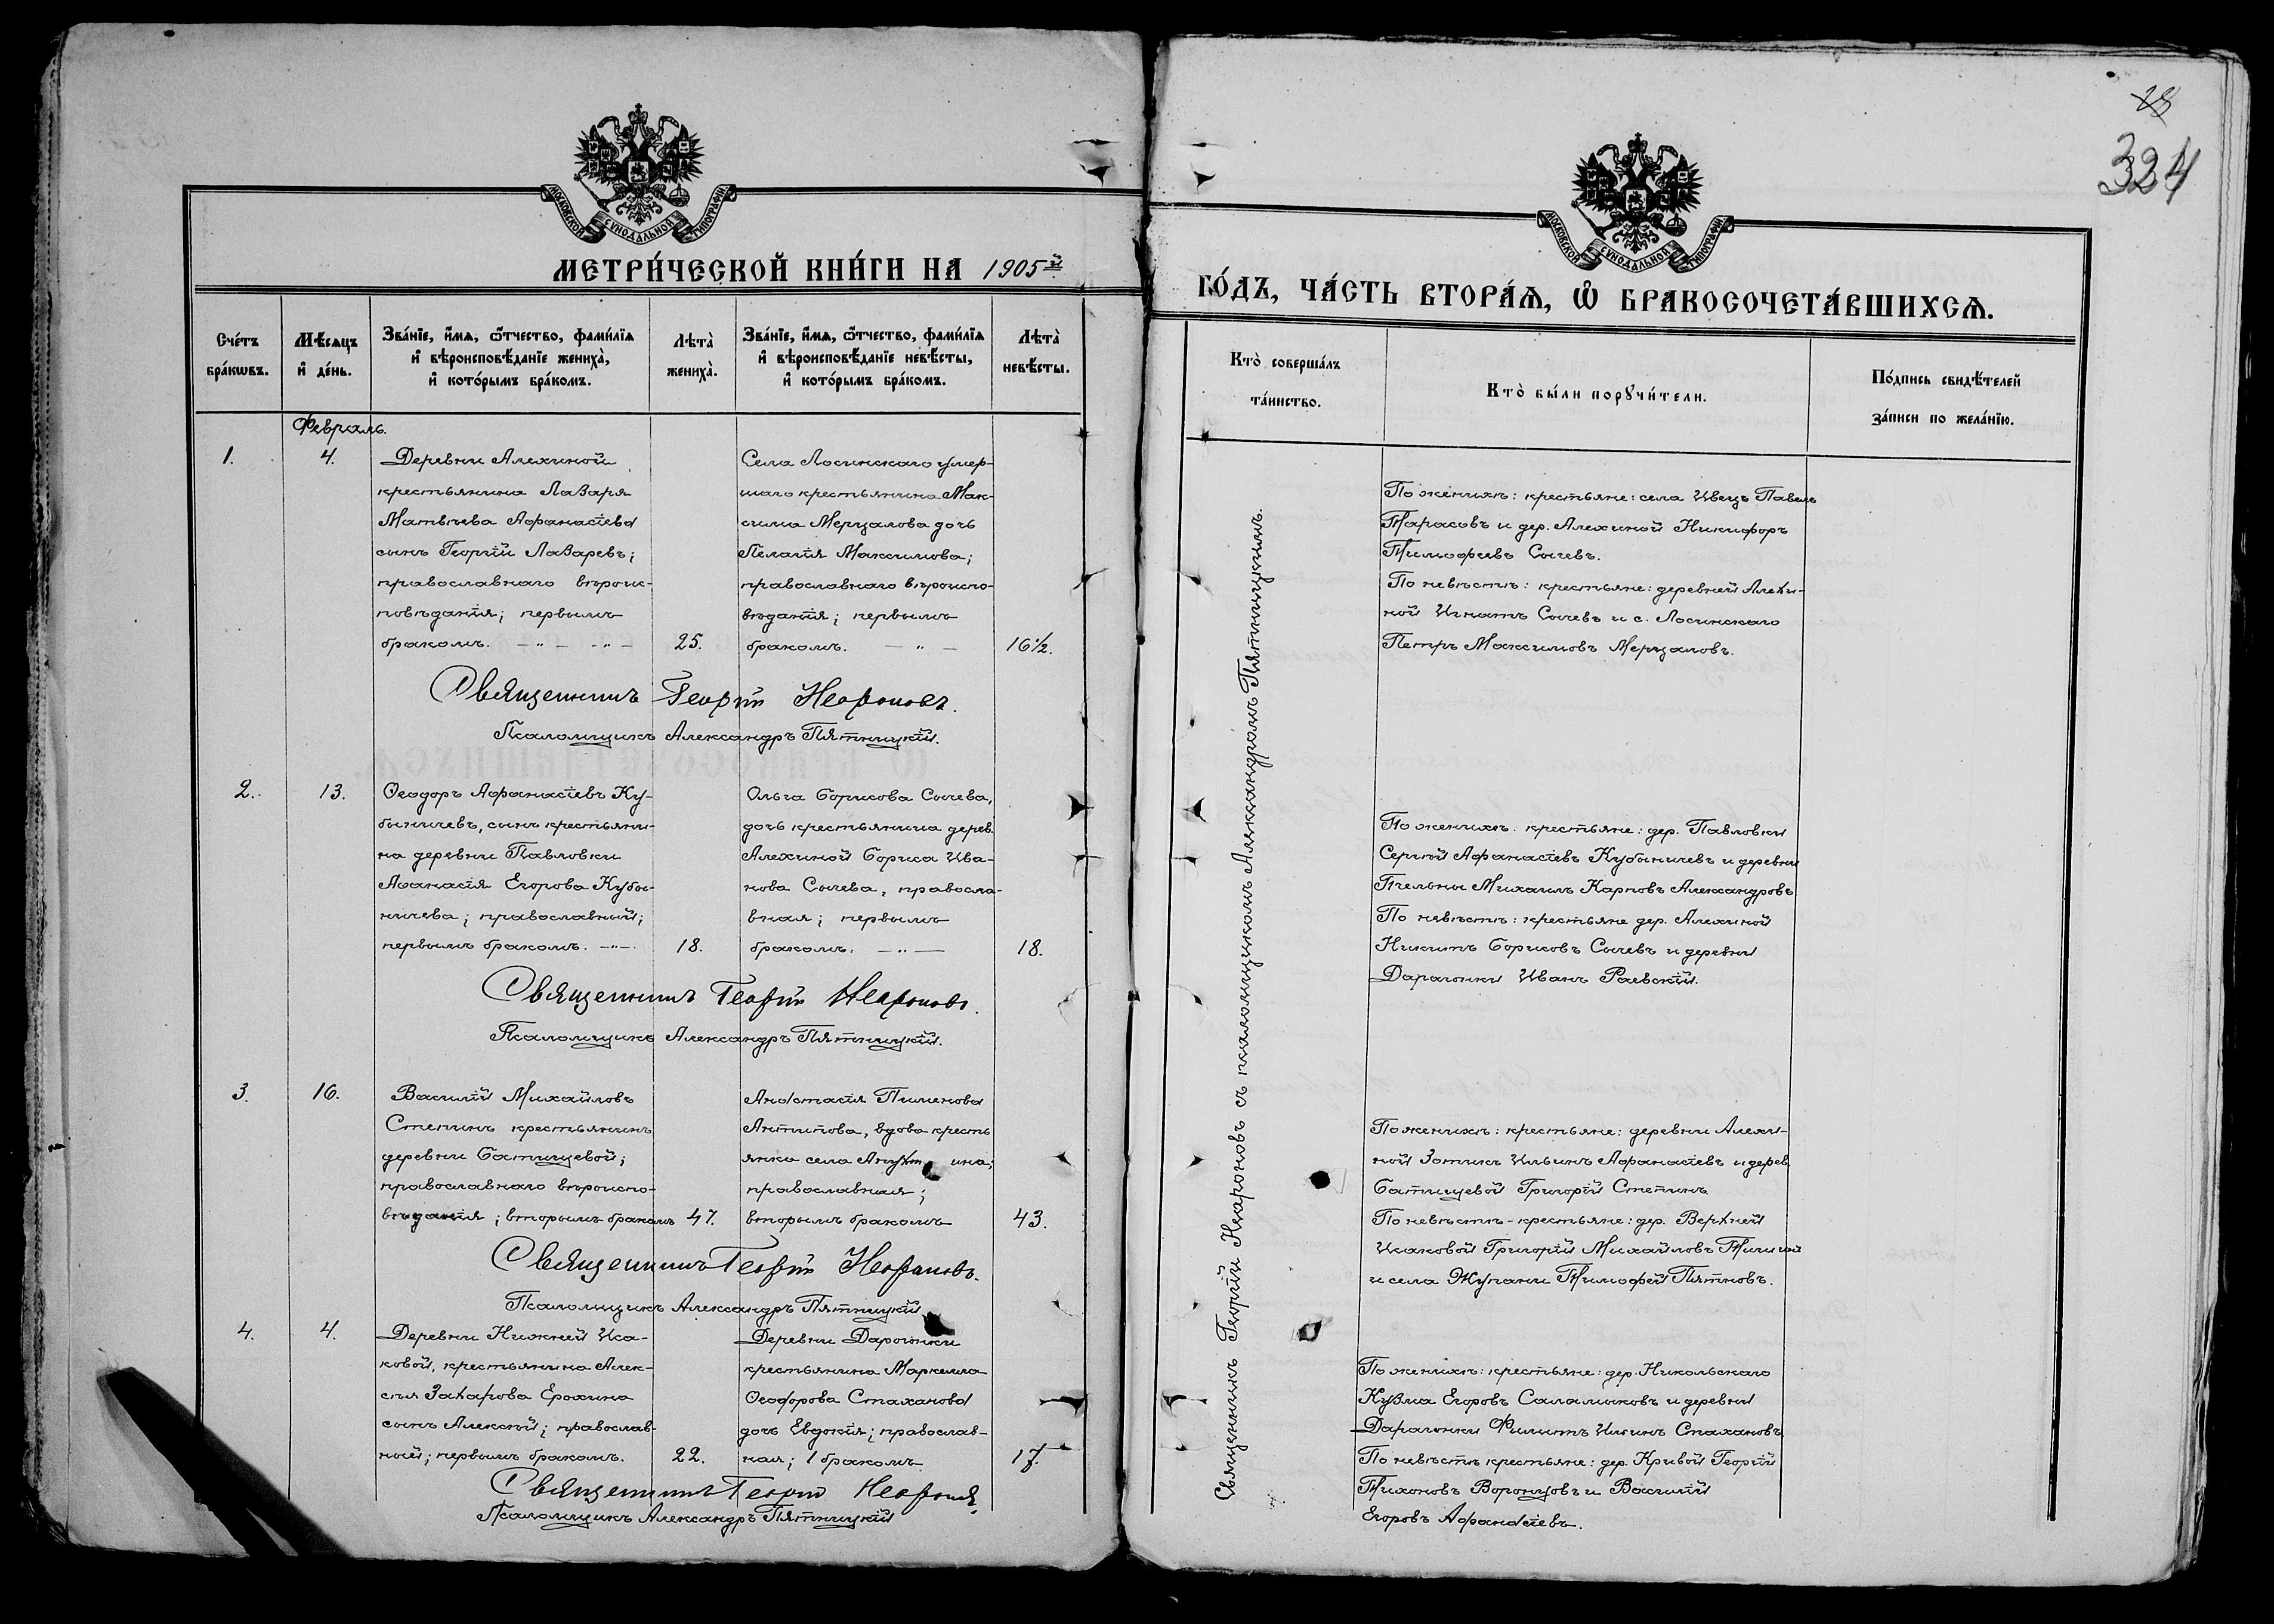 28
324
МОСКОВСКОЙ СѴНОДАЛЬНОЙ ТИПОГРАФІИ
МЕТРИ́ЧЕСКОЙ КНИ́ГИ НА 1905й
Сче́тъ бра́кωвъ.
Мѣ́сяцъ и҆ де́нь.
Зва́нїе, и҆́мѧ, ѻ҆́тчество, фамѝлїѧ и҆ вѣроисповѣ́данїе жениха̀, и҆ кото́рымъ бра́комъ.
Лѣта̀ жениха̀.
Зва́нїе, и҆́мѧ, ѻ҆́тчество, фамѝлїѧ и҆ вѣроисповѣ́данїе невѣ́сты, и҆ кото́рымъ бра́комъ.
Лѣта̀ невѣ́сты.
Февраль.
1.
4.
Деревни Алехиной
крестьянина Лазаря
Матвѣева Афанасіева
сынъ Георгій Лазаревъ;
православнаго вѣроис-
повѣданія; первымъ
бракомъ. — " — - " —
25.
Села Лосинскаго умер-
шаго крестьянина Мак-
сима Мерцалова дочь
Пелагія Максимова;
православнаго вѣроиспо-
вѣданія; первымъ
бракомъ. — " —
16 1/2.
Священникъ Георгій Неароновъ.
Псаломщикъ Александръ Пятницкій.
2.
13.
Ѳеодоръ Афанасіевъ Ку-
быничевъ, сынъ крестьяни-
на деревни Павловки
Аѳанасія Егорова Кубы-
ничева; православный;
первымъ бракомъ. — " —
18.
Ольга Борисова Сычева,
дочь крестьянина дерев.
Алехиной Бориса Ива-
нова Сычева, правосла-
вная; первымъ
бракомъ. — " —
18.
Священникъ Георгій Неароновъ.
Псаломщикъ Александръ Пятницкій.
3.
16.
Василій Михайловъ
Степинъ крестьянинъ
деревни Батищевой;
православнаго вѣроиспо-
вѣданія; вторымъ бракомъ
47.
Анастасія Пименова
Антипова, вдова кресть
янка села
православная;
вторымъ бракомъ
43.
Священникъ Георгій Неароновъ.
Псаломщикъ Александръ Пятницкій
4.
4.
Деревни Нижней Иса-
ковой, крестьянина Алек-
сѣя Захарова Ерохина
сынъ Алексѣй; православ-
ный; первымъ бракомъ.
22.
Деревни Дарогонки
крестьянина Маркелла
Ѳеодорова Стаханова
дочь Евдокія; православ-
ная; 1 бракомъ
17.
Священникъ Георгій Неароновъ
Псаломщикъ Александръ Пятницкій
МОСКОВСКОЙ СѴНОДАЛЬНОЙ ТИПОГРАФІИ
ГО́ДЪ, ЧА́СТЬ ВТОРА́Ѧ, Ѡ҆ БРАКОСОЧЕТА́ВШИХСѦ.
Кто̀ соверша́лъ та́инство.
Кто̀ бы́ли порꙋчи́тели.
По́дпись свидѣ́телей за́писи по жела́нїю.
Священникъ Георгій Неароновъ съ псаломщикомъ Александромъ Пятницкимъ.
По женихѣ: крестьяне: села Ивецъ Павелъ
Тарасовъ и дер. Алехиной Никифоръ
Тимофеевъ Сычевъ.
По невѣстѣ: крестьяне: деревней Алехи-
ной Игнатъ Сычевъ и с. Лосинскаго
Петръ Максимовъ Мерцаловъ.
По женихѣ: крестьяне: дер. Павловки
Сергѣй Афанасіевъ Кубыничевъ и деревни
Пчельны Михаилъ Карповъ Александровъ
По невѣстѣ: крестьяне дер. Алехиной
Никитъ Борисовъ Сычевъ и деревни
Дарагонки Иванъ Раевскій.
По женихѣ: крестьяне: деревни Алехи-
ной Зотикъ Ильинъ Афанасіевъ и дерев.
Батищевой Григорій Степинъ
По невѣстѣ - крестьяне: дер. Верхней
Исаковой Григорій Михайловъ
и села Жупани Тимофей Пятновъ.
По женихѣ: крестьяне: дер. Никольскаго
Кузма Егоровъ Саламыковъ и деревни
Дарагонки Филипъ Ильинъ Стахановъ
По невѣстѣ крестьяне: дер. Кривой Георгій
Тихоновъ Воронцовъ и Василій
Егоровъ Афанасіевъ.